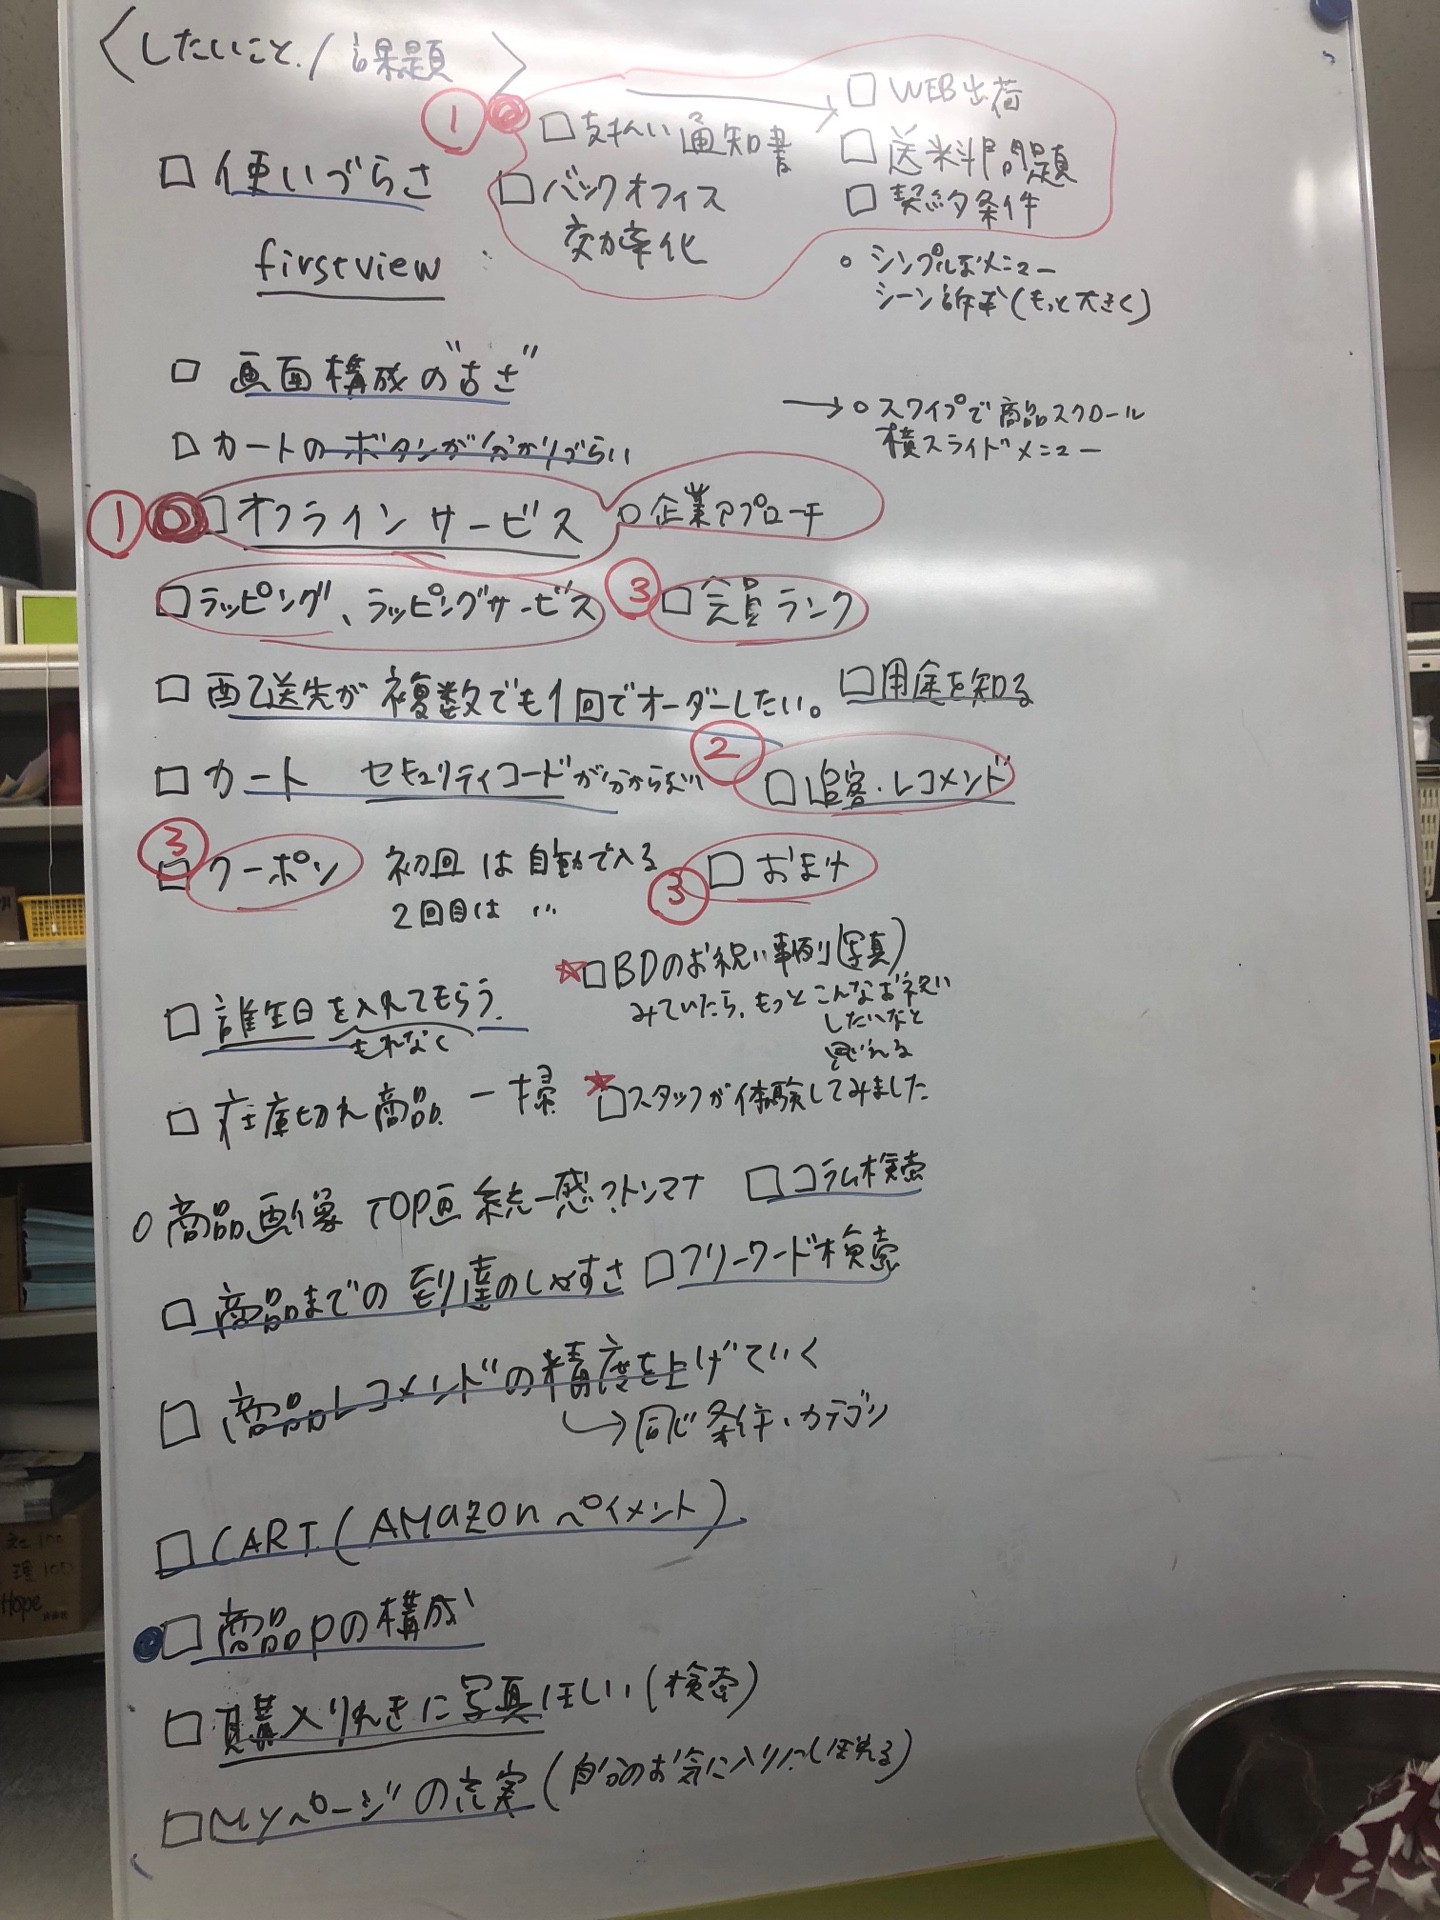 〈したいこと/課題〉
① □支払い通知書 → □WEB出荷
□送料問題
□契約条件
□使いづらさ
□バックオフィス
効率化
firstview
○シンプルなメニュー
シーン訴求(もっと大きく)
□画面構成の"古さ"
→○スワイプで商品スクロール
横スライドメニュー
□カートのボタンが分かりづらい
① □オフラインサービス ○企業アプローチ
□ラッピング、ラッピングサービス ③ □会員ランク
□配送先が複数でも1回でオーダーしたい。 □用途を知る
□カート セキュリティコードが分からない ② □追客・レコメンド
③ □クーポン 初回は自動で入る ③ □おまけ
2回目は…
□誕生日を入れてもらう
もれなく
☆□BDのお祝い事例(写真)
みていたら、もっとこんなお祝い
したいなと
思える
□在庫切れ商品 一掃 ☆□スタッフが体験してみました
○商品画像 TOP画 統一感?トンマナ □コラム検索
□商品までの到達のしやすさ □フリーワード検索
□商品レコメンドの精度を上げていく
→同じ条件・カテゴリ
□CART(AMazonペイメント)
●□商品Pの構成
□購入りれきに写真ほしい(検索)
□Myページの充実(自分のお気に入りに